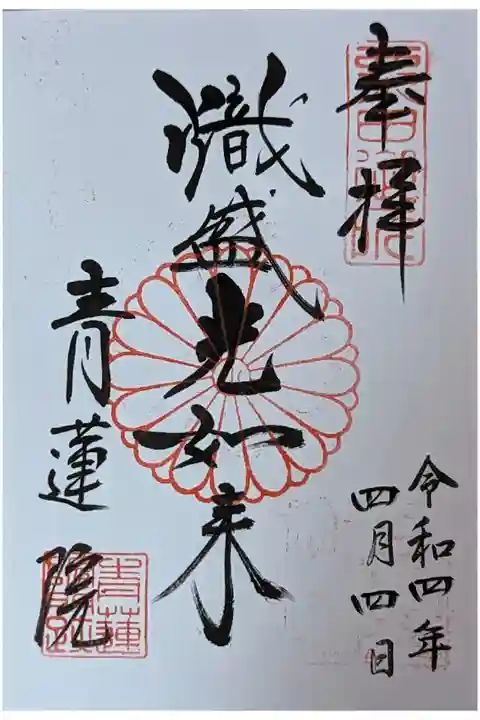 奉拝
令和四年
四月四日
熾盛光如来
青蓮院
青蓮